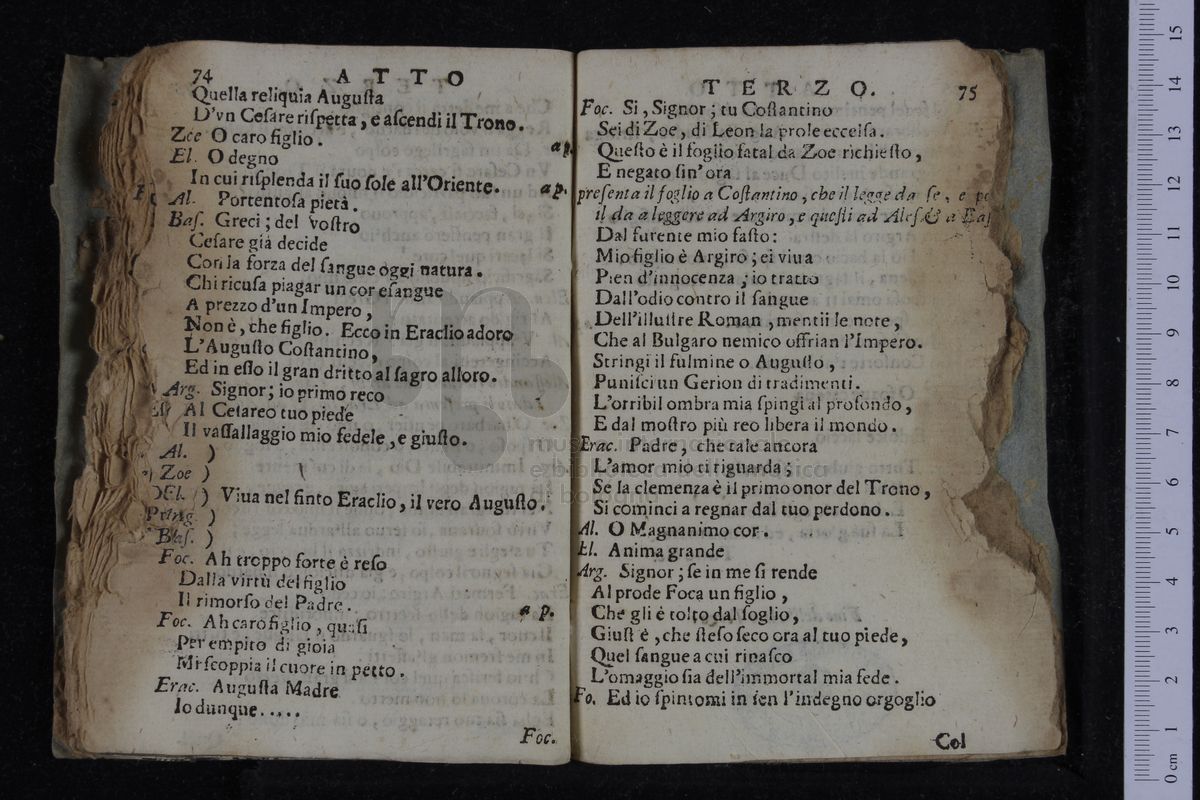 74 ATTO
Quella reliquia Auguſta
D'vn Ceſare riſpetta, e aſcendi il Trono.
Zoe O caro figlio. ap.
El. O degno
In cui riſplenda il ſuo ſole all'Oriente. ap.
Al. Portentoſa pietà.
Baſ. Greci; del voſtro
Ceſare già decide
Con la forza del ſangue oggi natura.
Chi ricuſa piagar un cor eſangue
A prezzo d'un Impero,
Non è, che figlio. Ecco in Eraclio adoro
L'Auguſto Coſtantino,
Ed in eſſo il gran dritto al ſagro alloro.
Arg. Signor; io primo reco
Al Ceſareo tuo piede
Il vaſſallaggio mio fedele, e giuſto.
Al. )
Zoe )
El. ) Viua nel finto Eraclio, il vero Auguſto.
)
Baſ. )
Foc. Ah troppo forte è reſo
Dalla virtù del figlio
Il rimorſo del Padre. a p.
Foc. Ah caro figlio, quaſi
Per empito di gioia
Mi ſcoppia il cuore in petto.
Erac. Auguſta Madre
Io dunque.....
Foc.
TERZO. 75
Foc. Si, Signor; tu Coſtantino
Sei di Zoe, di Leon la prole eccelſa.
Queſto è il foglio fatal da Zoe richieſto,
E negato ſin' ora
preſenta il foglio a Coſtantino, che il legge da ſe, e
il da a leggere ad Argiro, e queſti ad Aleſ. & a Baſ
Dal furente mio faſto:
Mio figlio è Argiro; ei viua
Pien d'innocenza; io tratto
Dall'odio contro il ſangue
Dell'illuſtre Roman, mentii le note,
Che al Bulgaro nemico offrian l'Impero.
Stringi il fulmine o Auguſto,
Puniſci un Gerion di tradimenti.
L'orribil ombra mia ſpingi al profondo,
E dal moſtro più reo libera il mondo.
Erac. Padre, che tale ancora
L'amor mio ti riguarda;
Se la clemenza è il primo onor del Trono,
Si cominci a regnar dal tuo perdono.
Al. O Magnanimo cor.
El. Anima grande
Arg. Signor; ſe in me ſi rende
Al prode Foca un figlio,
Che gli è tolto dal ſoglio,
Giuſt è, che ſteſo ſeco ora al tuo piede,
Quel ſangue a cui rinaſco
L'omaggio ſia dell'immortal mia fede.
Fo. Ed io ſpintomi in ſen l'indegno orgoglio
Col